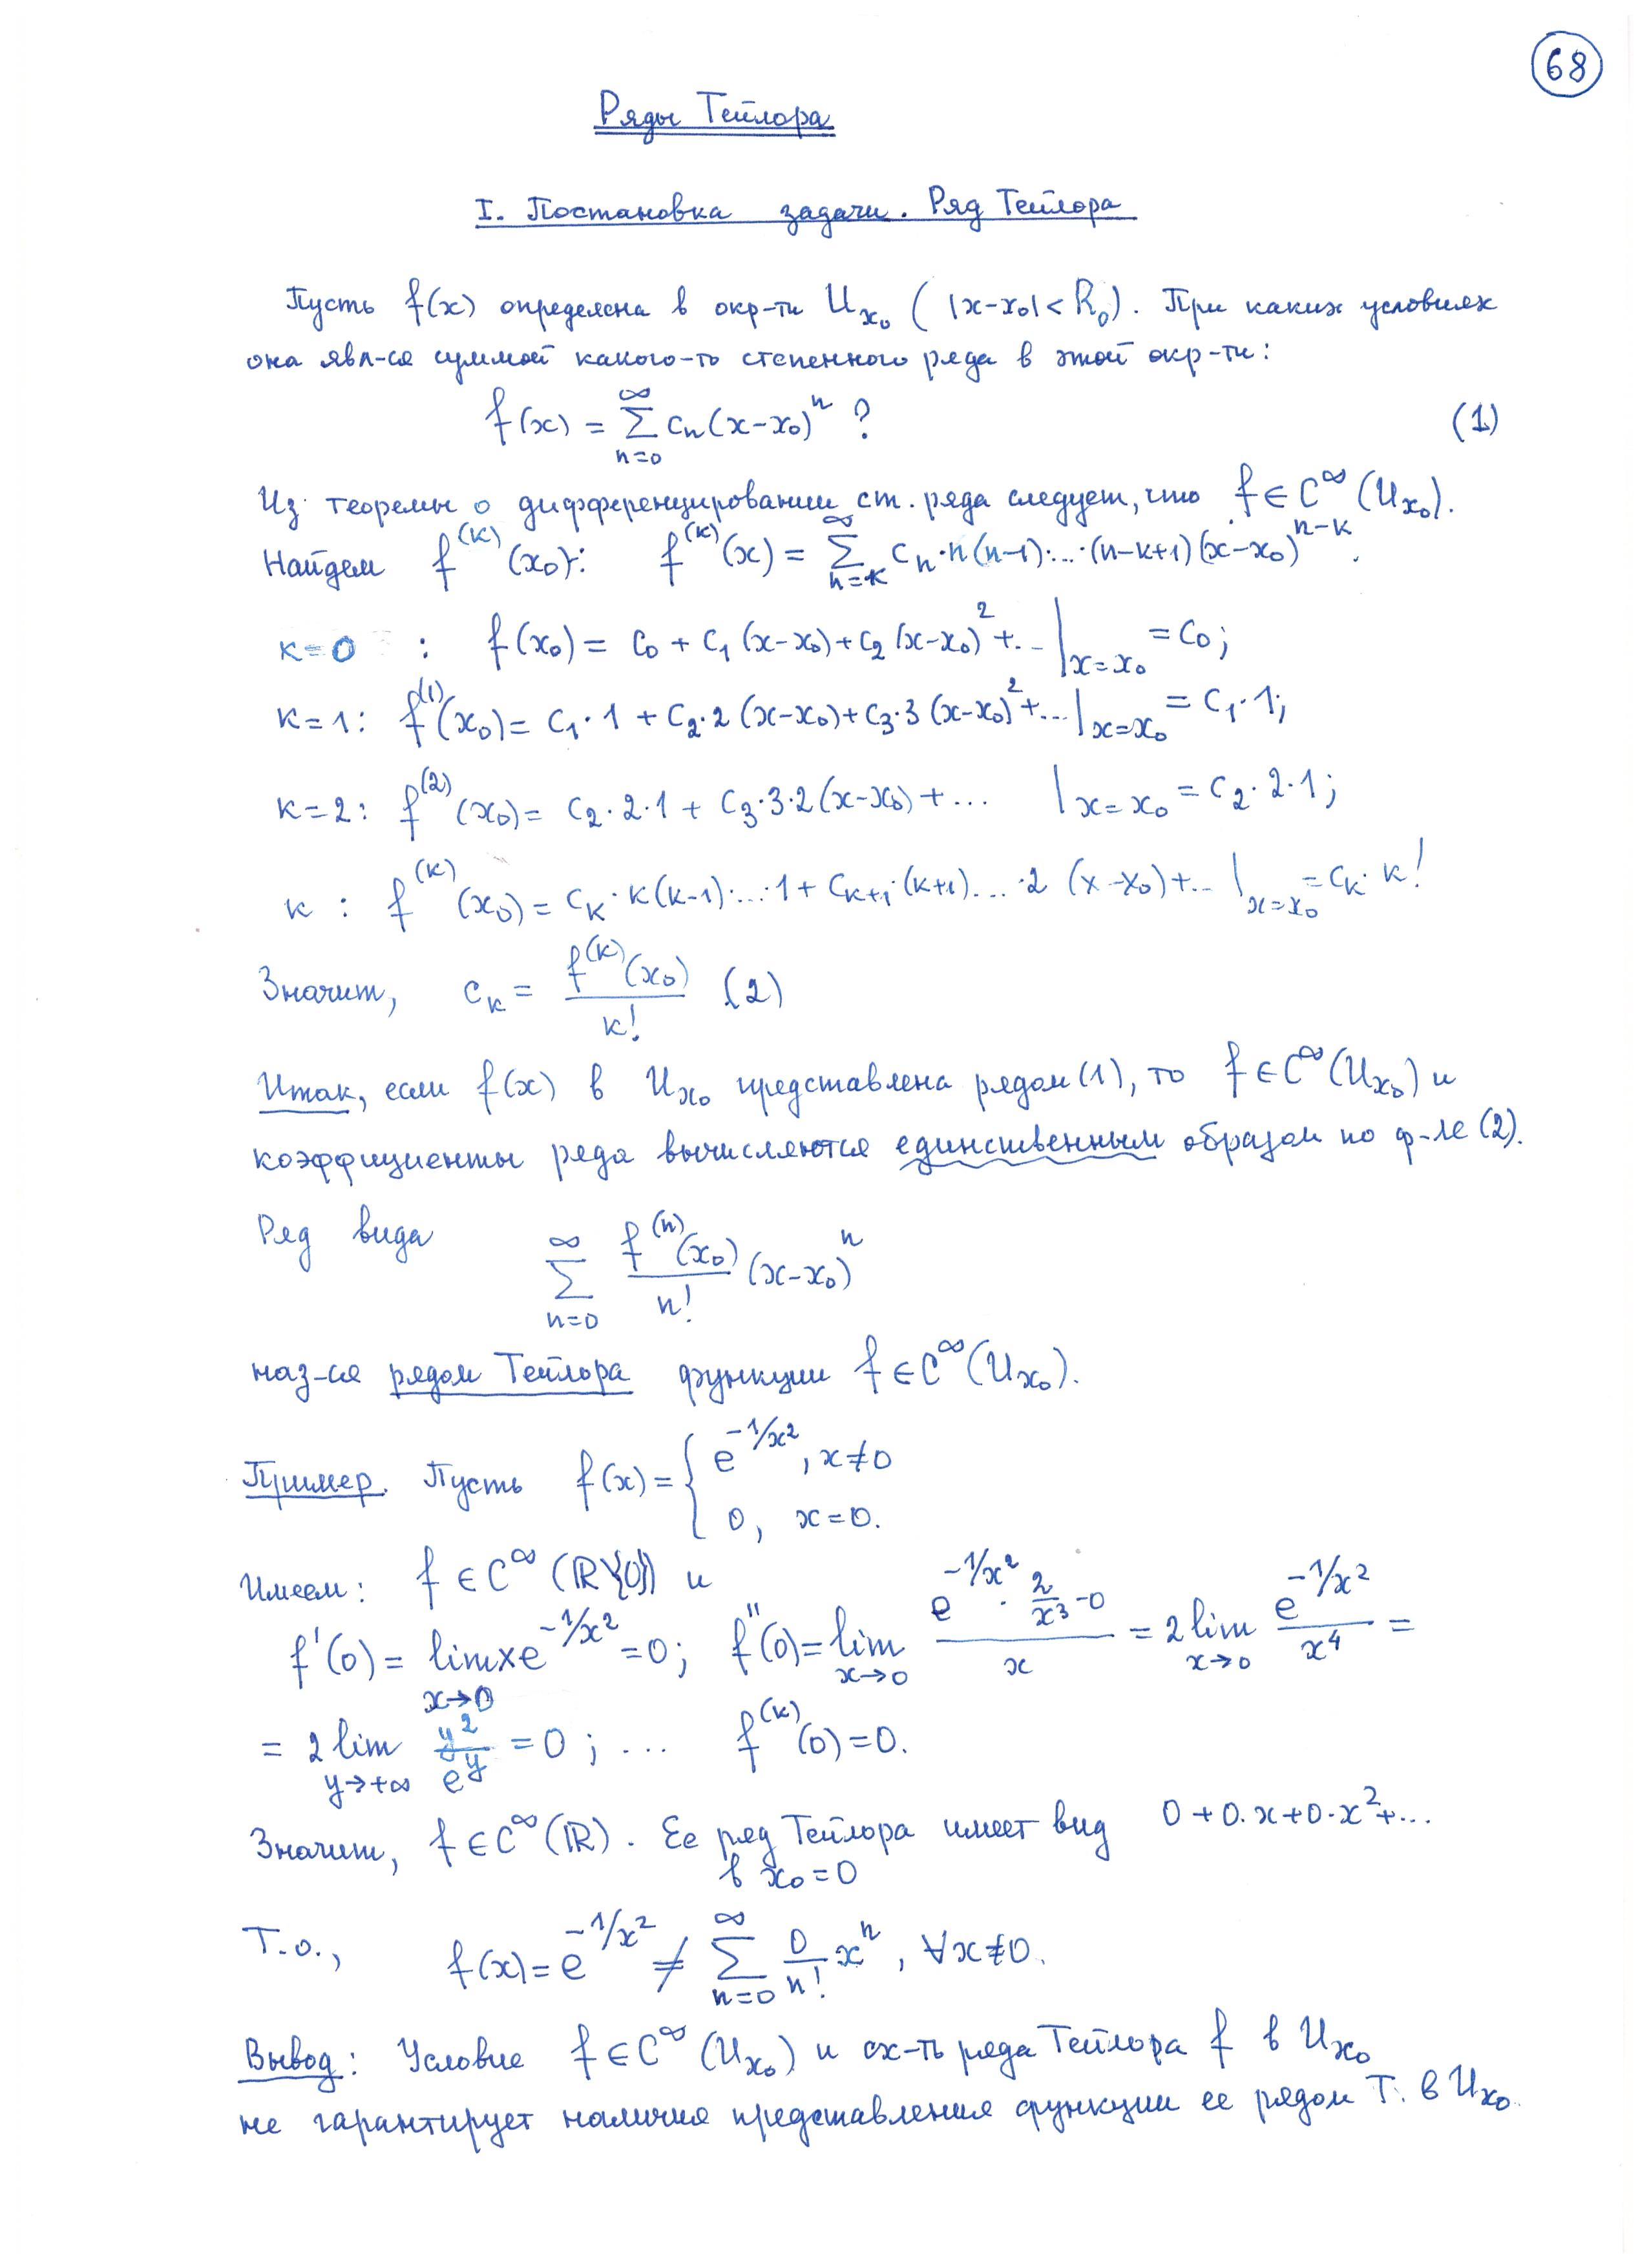 68
Ряды Тейлора
I. Постановка задачи. Ряд Тейлора
Пусть f(x) определена в окр-ти U_{x₀} ( |x-x₀| < R₀). При каких условиях
она явл-ся суммой какого-то степенного ряда в этой окр-ти:
f(x) = ∑_{n=0}^{∞} cₙ(x-x₀)ⁿ ? (1)
Из теоремы о дифференцировании ст. ряда следует, что f ∈ C^∞(U_{x₀}).
Найдем f^{(k)}(x₀): f^{(k)}(x) = ∑_{n=k}^{∞} cₙ·n(n-1)·...·(n-k+1)(x-x₀)^{n-k}.
k=0 : f(x₀) = c₀ + c₁(x-x₀) + c₂(x-x₀)² + ... |_{x=x₀} = c₀;
k=1: f^{(1)}(x₀) = c₁·1 + c₂·2(x-x₀) + c₃·3(x-x₀)² + ... |_{x=x₀} = c₁·1;
k=2: f^{(2)}(x₀) = c₂·2·1 + c₃·3·2(x-x₀) + ... |_{x=x₀} = c₂·2·1;
k : f^{(k)}(x₀) = c_k·k(k-1)·...·1 + c_{k+1}·(k+1)...·2 (x-x₀) + ... |_{x=x₀} = c_k·k!
Значит, c_k = f^{(k)}(x₀)/k! (2)
Итак, если f(x) в U_{x₀} представлена рядом (1), то f ∈ C^∞(U_{x₀}) и
коэффициенты ряда вычисляются единственным образом по ф-ле (2).
Ряд вида ∑_{n=0}^{∞} f^{(n)}(x₀)/n! (x-x₀)ⁿ
наз-ся рядом Тейлора функции f ∈ C^∞(U_{x₀}).
Пример. Пусть f(x) = { e^{-1/x²}, x≠0
0, x=0.
Имеем: f ∈ C^∞(ℝ\{0}) и
f'(0) = lim_{x→0} x e^{-1/x²} = 0; f''(0) = lim_{x→0} (e^{-1/x²}·2/x³ - 0)/x = 2 lim_{x→0} e^{-1/x²}/x⁴ =
= 2 lim_{y→+∞} y²/e^y = 0 ; ... f^{(k)}(0) = 0.
Значит, f ∈ C^∞(ℝ). Ее ряд Тейлора имеет вид 0 + 0·x + 0·x² + ...
в x₀ = 0
Т.о., f(x) = e^{-1/x²} ≠ ∑_{n=0}^{∞} 0/n! xⁿ, ∀x≠0.
Вывод: Условие f ∈ C^∞(U_{x₀}) и сх-ть ряда Тейлора f в U_{x₀}
не гарантирует наличия представления функции ее рядом Т. в U_{x₀}.